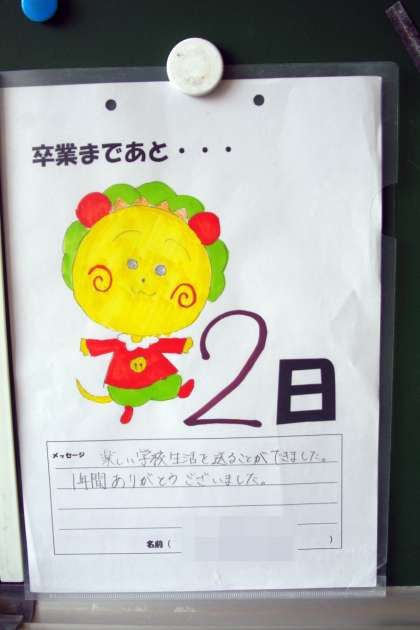 卒業まであと・・・
2日
メッセージ 楽しい学校生活を送ることができました。
1年間ありがとうございました。
名前（ ）